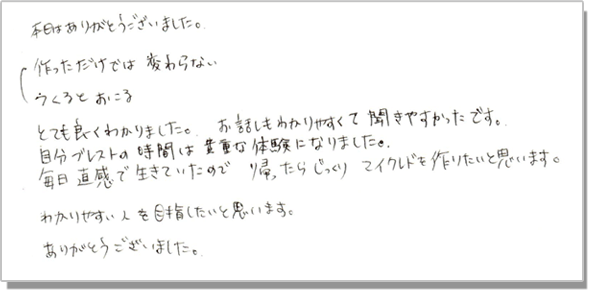 本日はありがとうございました。
作っただけでは 変わらない
つくると おこる
とても良くわかりました。 お話しもわかりやすくて 聞きやすかったです。
自分ブレストの時間は 貴重な体験になりました。
毎日直感で生きていたので 帰ったらじっくり マイクレドを作りたいと思います。
わかりやすい人を目指したいと思います。
ありがとうございました。